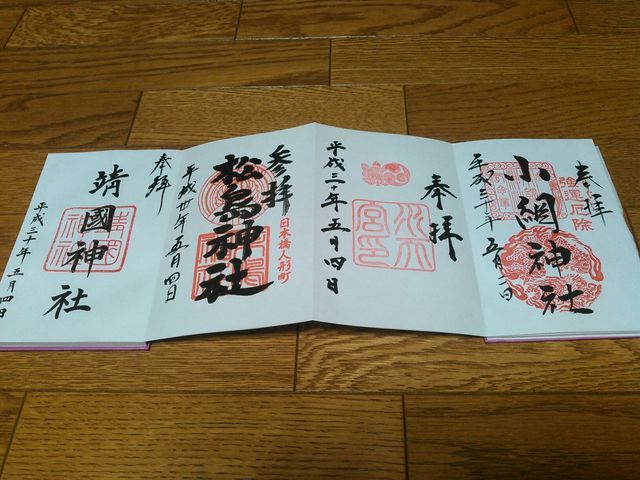 奉拝
強運厄除
小網神社
平成三十年五月二日
奉拝
水天宮印
平成三十年五月四日
参拝
日本橋人形町
松島神社
平成卅年五月四日
奉拝
靖國神社
平成三十年五月四日